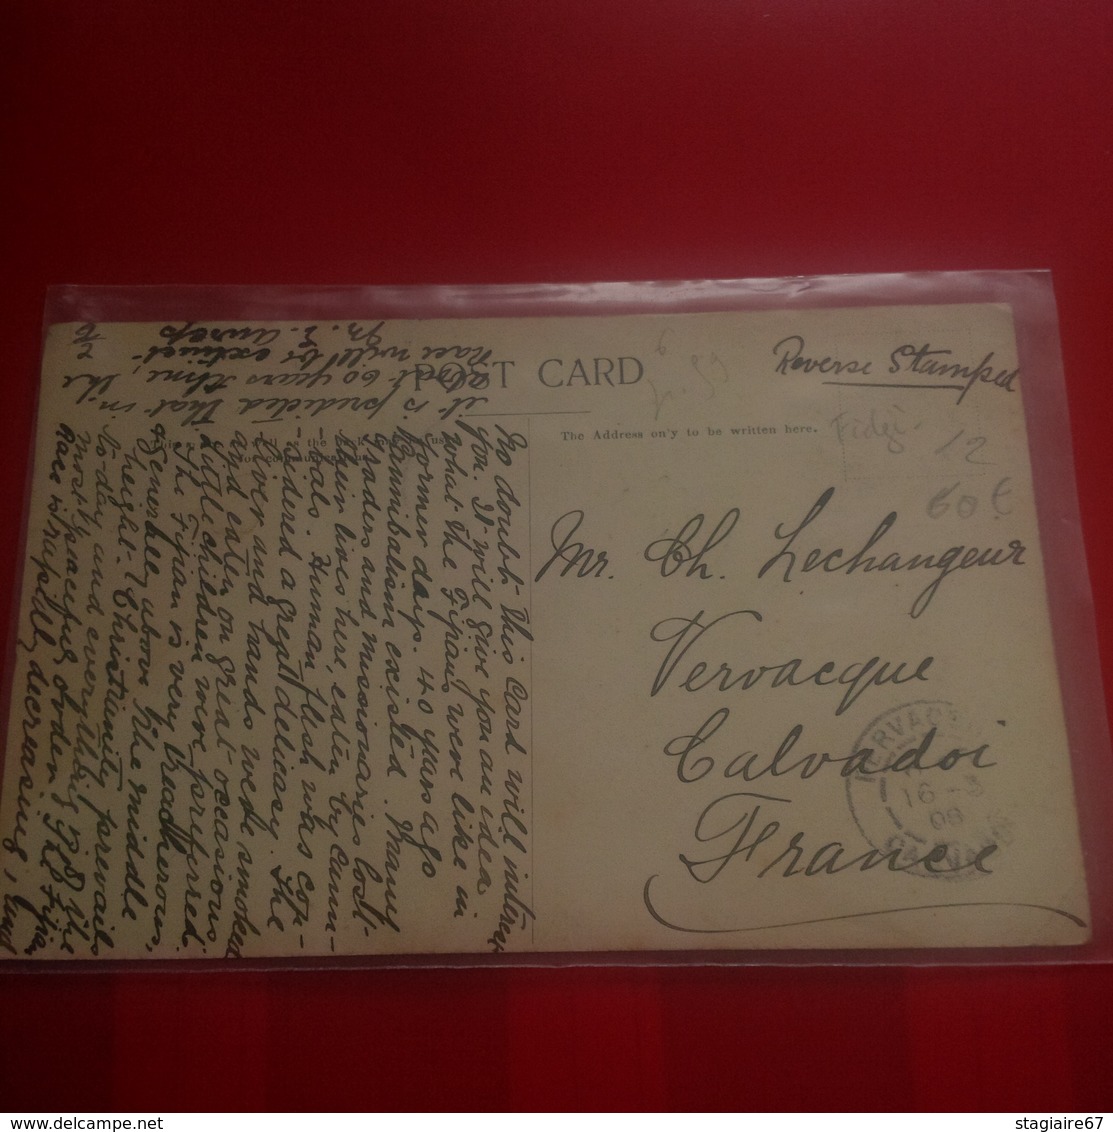 POST CARD
Reverse Stamped
The Address on'y to be written here.
Fidgi
12
60 €
Mr. Ch. Lechangeur
Vervacque
Calvadoi
France
16 - 3
No doubt this Card will interest
you. It will give you an idea
what the Fijians were like in
former days. 40 years ago
Cannibalism existed. Many
traders and missionaries lost
their lives here, eaten by Cann-
-ibals. Human flesh was con-
-sidered a great delicasy. The
liver and hands were smoked
and eaten on great occasions
Little children were preferred.
The Fijian is very treacherous.
& Demashley above the middle
height. Christianity prevails
to-day and everything is of the
most peaceful order. The Fijian
race is rapidly decreasing, and
it is predicted that in
about 60 years time, the
race will be extinct.
stagiaire67